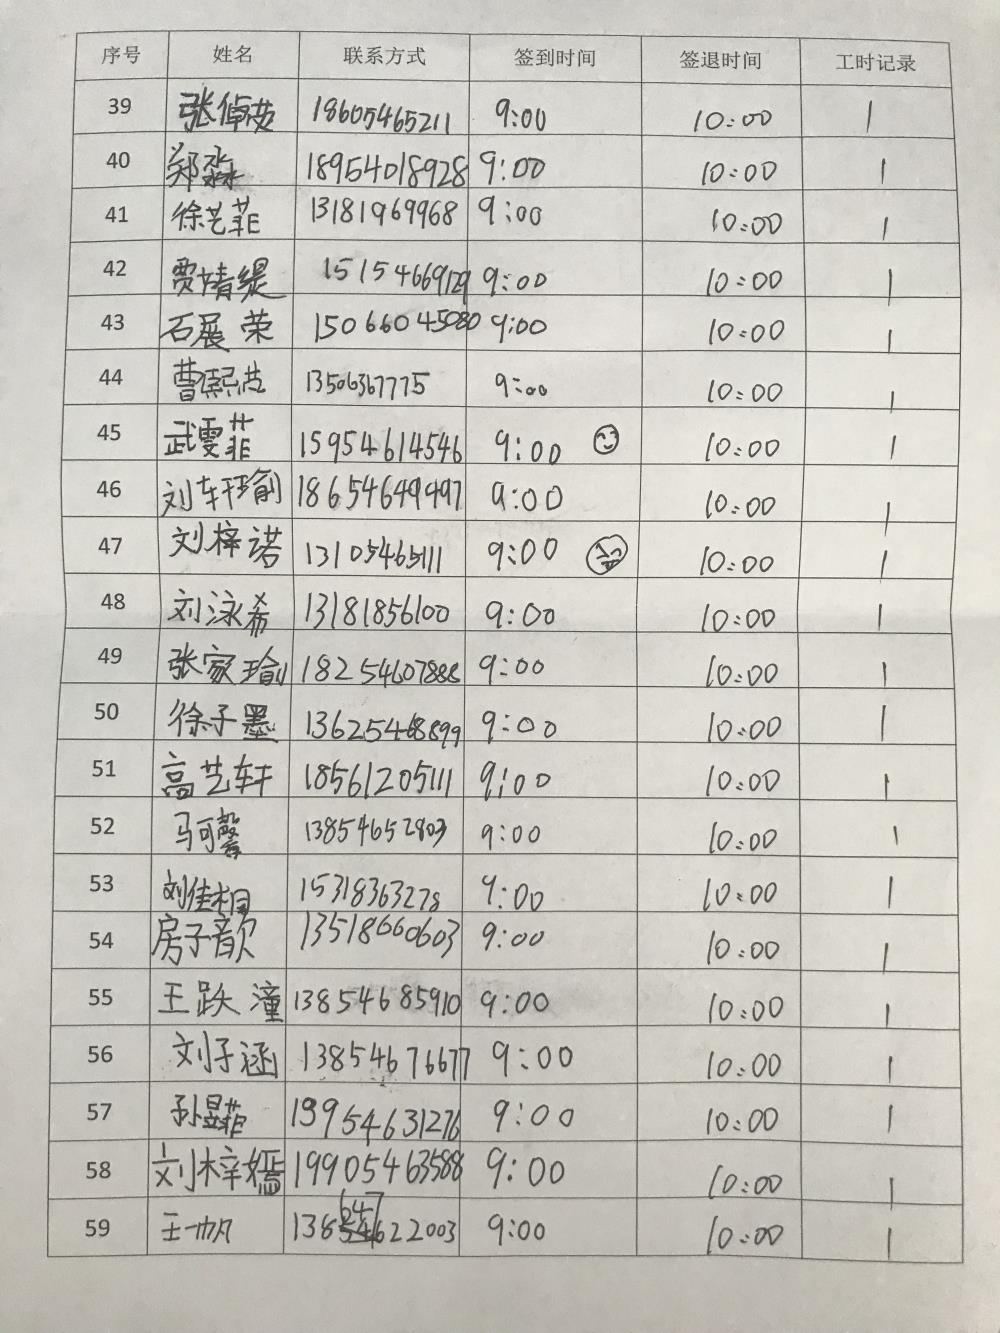 序号 姓名 联系方式 签到时间 签退时间 工时记录
39 张倬茈 18605465211 9:00 10:00 1
40 郑淼 18954018928 9:00 10:00 1
41 徐艺菲 13181969968 9:00 10:00 1
42 贾婧缇 15154669129 9:00 10:00 1
43 石展荣 15066045080 9:00 10:00 1
44 曹熙芸 13506367775 9:00 10:00 1
45 武雯菲 15954614546 9:00 10:00 1
46 刘轩瑜 18654649497 9:00 10:00 1
47 刘梓诺 13105465111 9:00 10:00 1
48 刘泳希 13181856100 9:00 10:00 1
49 张家瑜 18254607888 9:00 10:00 1
50 徐子墨 13625468899 9:00 10:00 1
51 高艺轩 18561205111 9:00 10:00 1
52 马可馨 13854652803 9:00 10:00 1
53 刘佳桐 15318363278 9:00 10:00 1
54 房子歆 13518660603 9:00 10:00 1
55 王跃潼 13854685910 9:00 10:00 1
56 刘子涵 13854676677 9:00 10:00 1
57 孙昱菲 13954631276 9:00 10:00 1
58 刘梓嫣 19905463588 9:00 10:00 1
59 王一帆 138 647 622003 9:00 10:00 1